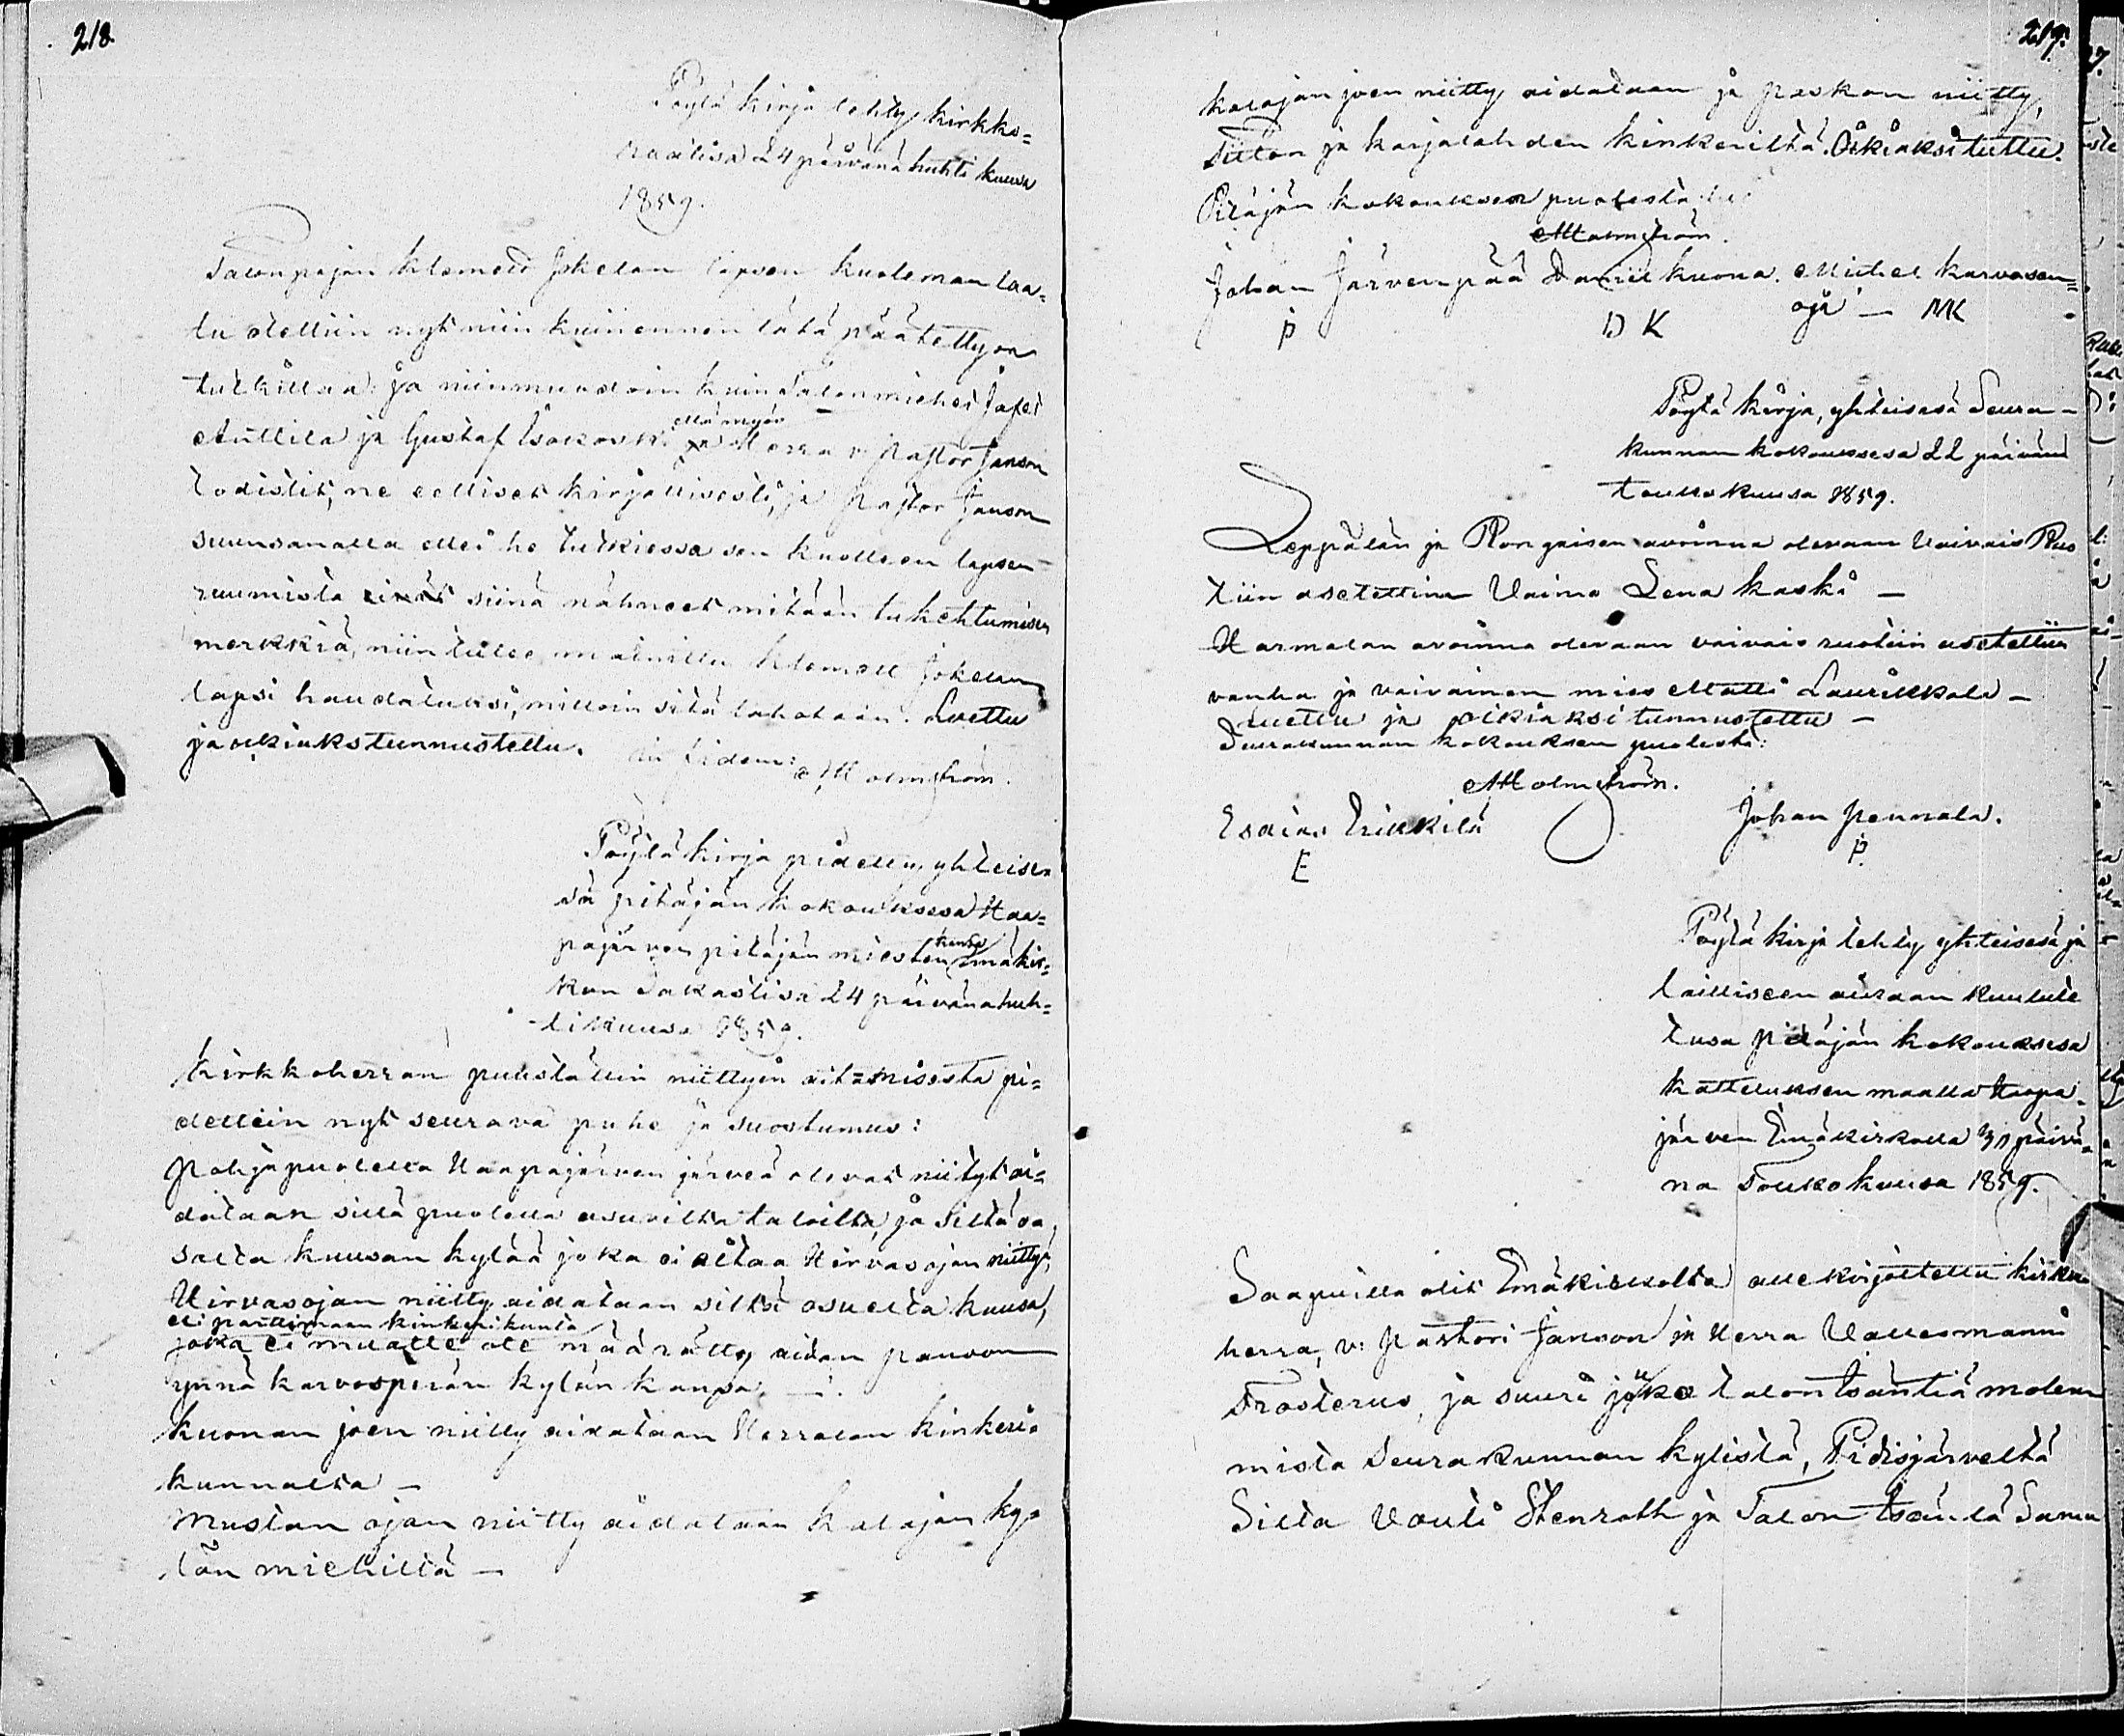 218.
Pöytä kirja tehty kirkko=
raadisa 24 päivänä huhti kuusa
1859.
Talonpojan Klemeti Jokelan lapsen kuoleman laa=
tu otettiin nyt niin kuin ennen tätä päätetty on
tutkittaa: ja niinmuodoin kuin Talonmiehet Jafet
Anttila ja Gustaf Isokoski että myös Herra v. Pastor Janson
todistit, ne edelliset kirjallisesti, ja Pastor Janson
suunsanalla ettei he tutkiessa sen kuolleen lapsen
ruumista siinä nähneet mitään tukehtumisen
merkkiä, niin tulee mainittu Klemett Jokelan
lapsi haudatuksi, milloin sitä tahotaan. Luettu
ja oikiaks tunnustettu.
in fidem: Malmström.
Pöytä kirja pidetty yhteises=
sä pitäjän kokouksesa Haa=
pajärven pitäjän miesten kansa Emäkir=
kon Sakastisa 24 päivänä huh=
tikuusa 1859.
Kirkkoherran puuställin niittyin aitamisesta pi=
dettiin nyt seurava puhe ja suostumus:
Pohjapuolella Haapajärven järveä olevat niityt ai=
dataan sillä puolella asuvilta taloilta, ja siltä o=
salta Kuusan kylää joka ei aitaa Hirvasojan niittyä,
Hirvasojan niitty aidataan siltä osuelta Kuusa,
eli paittimaan kinkerikunta
joka ei mualle ole määrätty aidan panoon
ynnä Karvosperän kylän kansa. —
Kuonan joen niitty aidataan Herralan kinkeri=
kunnalta —
Mustan ojan niitty aidataan Kalajan ky=
län miehiltä —
219.
Kalajan joen niitty aidataan ja paskan niitty,
Tiiton ja Karjalahden kinkeriltä. Oikiaksi tuttu.
Pitäjän kokouksen puolesta
Malmström.
Johan Järvenpää Daniel Kuona. Michel Karvosen=
oja — MK
P D K
Pöytä kirja, yhteisesä Seura-
kunnan kokouksesa 22 päivänä
toukokuusa 1859.
Leppälän ja Ronkaisen avoinna olevaan Vaivais Ruo
tiin asetettiin Vaimo Lena Kaski —
Harmalan avoinna olevaan vaivais ruotiin asetettiin
vanha ja vaivainen mies Matti Laurikkala —
Luettu ja oikiaksi tunnustettu —
Seurakunnan kokouksen puolesta:
Malmström.
Esaias Erikkilä Johan Pennala.
E P.
Pöytä kirja tehty yhteisesä ja
lailliseen aikaan kuulute
tusa pidäjän kokouksesa
katteluksen maalla Haapa-
järven Emäkirkolla 30 päivä=
nä Toukokuusa 1859.
Saapuilla olit Emäkirkolta allekirjoitettu kirkko
herra, v: Pastori Janson ja Herra Vallesmanni
Frosterus, ja suuri joukko talon isäntiä molem
mista Seurakunnan kylistä, Pidisjärveltä
Silta Vouti Stenroth ja Talon isäntä Samu